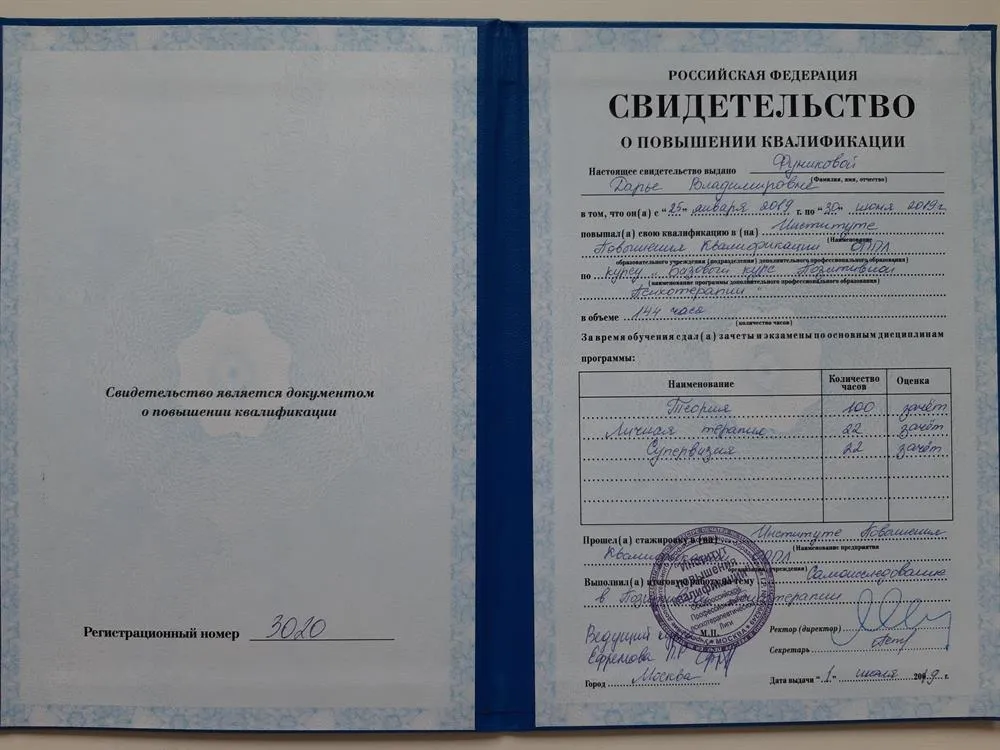 Свидетельство является документом
о повышении квалификации
Регистрационный номер 3020
РОССИЙСКАЯ ФЕДЕРАЦИЯ
СВИДЕТЕЛЬСТВО
О ПОВЫШЕНИИ КВАЛИФИКАЦИИ
Настоящее свидетельство выдано Фуниковой
(Фамилия, имя, отчество)
Дарье Владимировне
в том, что он(а) с "25" января 2019 г. по "30" июня 2019 г.
повышал(а) свою квалификацию в (на) Институте
(Наименование
Повышения Квалификации ОППЛ
образовательного учреждения (подразделения) дополнительного профессионального образования)
по курсу „Базовый курс Позитивной
(наименование программы дополнительного профессионального образования)
Психотерапии"
в объеме 144 часа
(количество часов)
За время обучения сдал(а) зачеты и экзамены по основным дисциплинам
программы:
Наименование Количество часов Оценка
Теория 100 зачёт
Личная терапия 22 зачёт
Супервизия 22 зачёт
Прошел(а) стажировку в (на) Институте Повышения
(Наименование предприятия
Квалификации ОППЛ
организации, учреждения)
Выполнил(а) итоговую работу на тему Самоисследование
в психотерапии
Институт
повышения
квалификации
Общероссийской
Профессиональной
психотерапевтической
Лиги
МОСКВА
М.П.
Ректор (директор)
Ведущий
Ефремова
Секретарь
Город Москва
Дата выдачи "1" июля 2019 г.